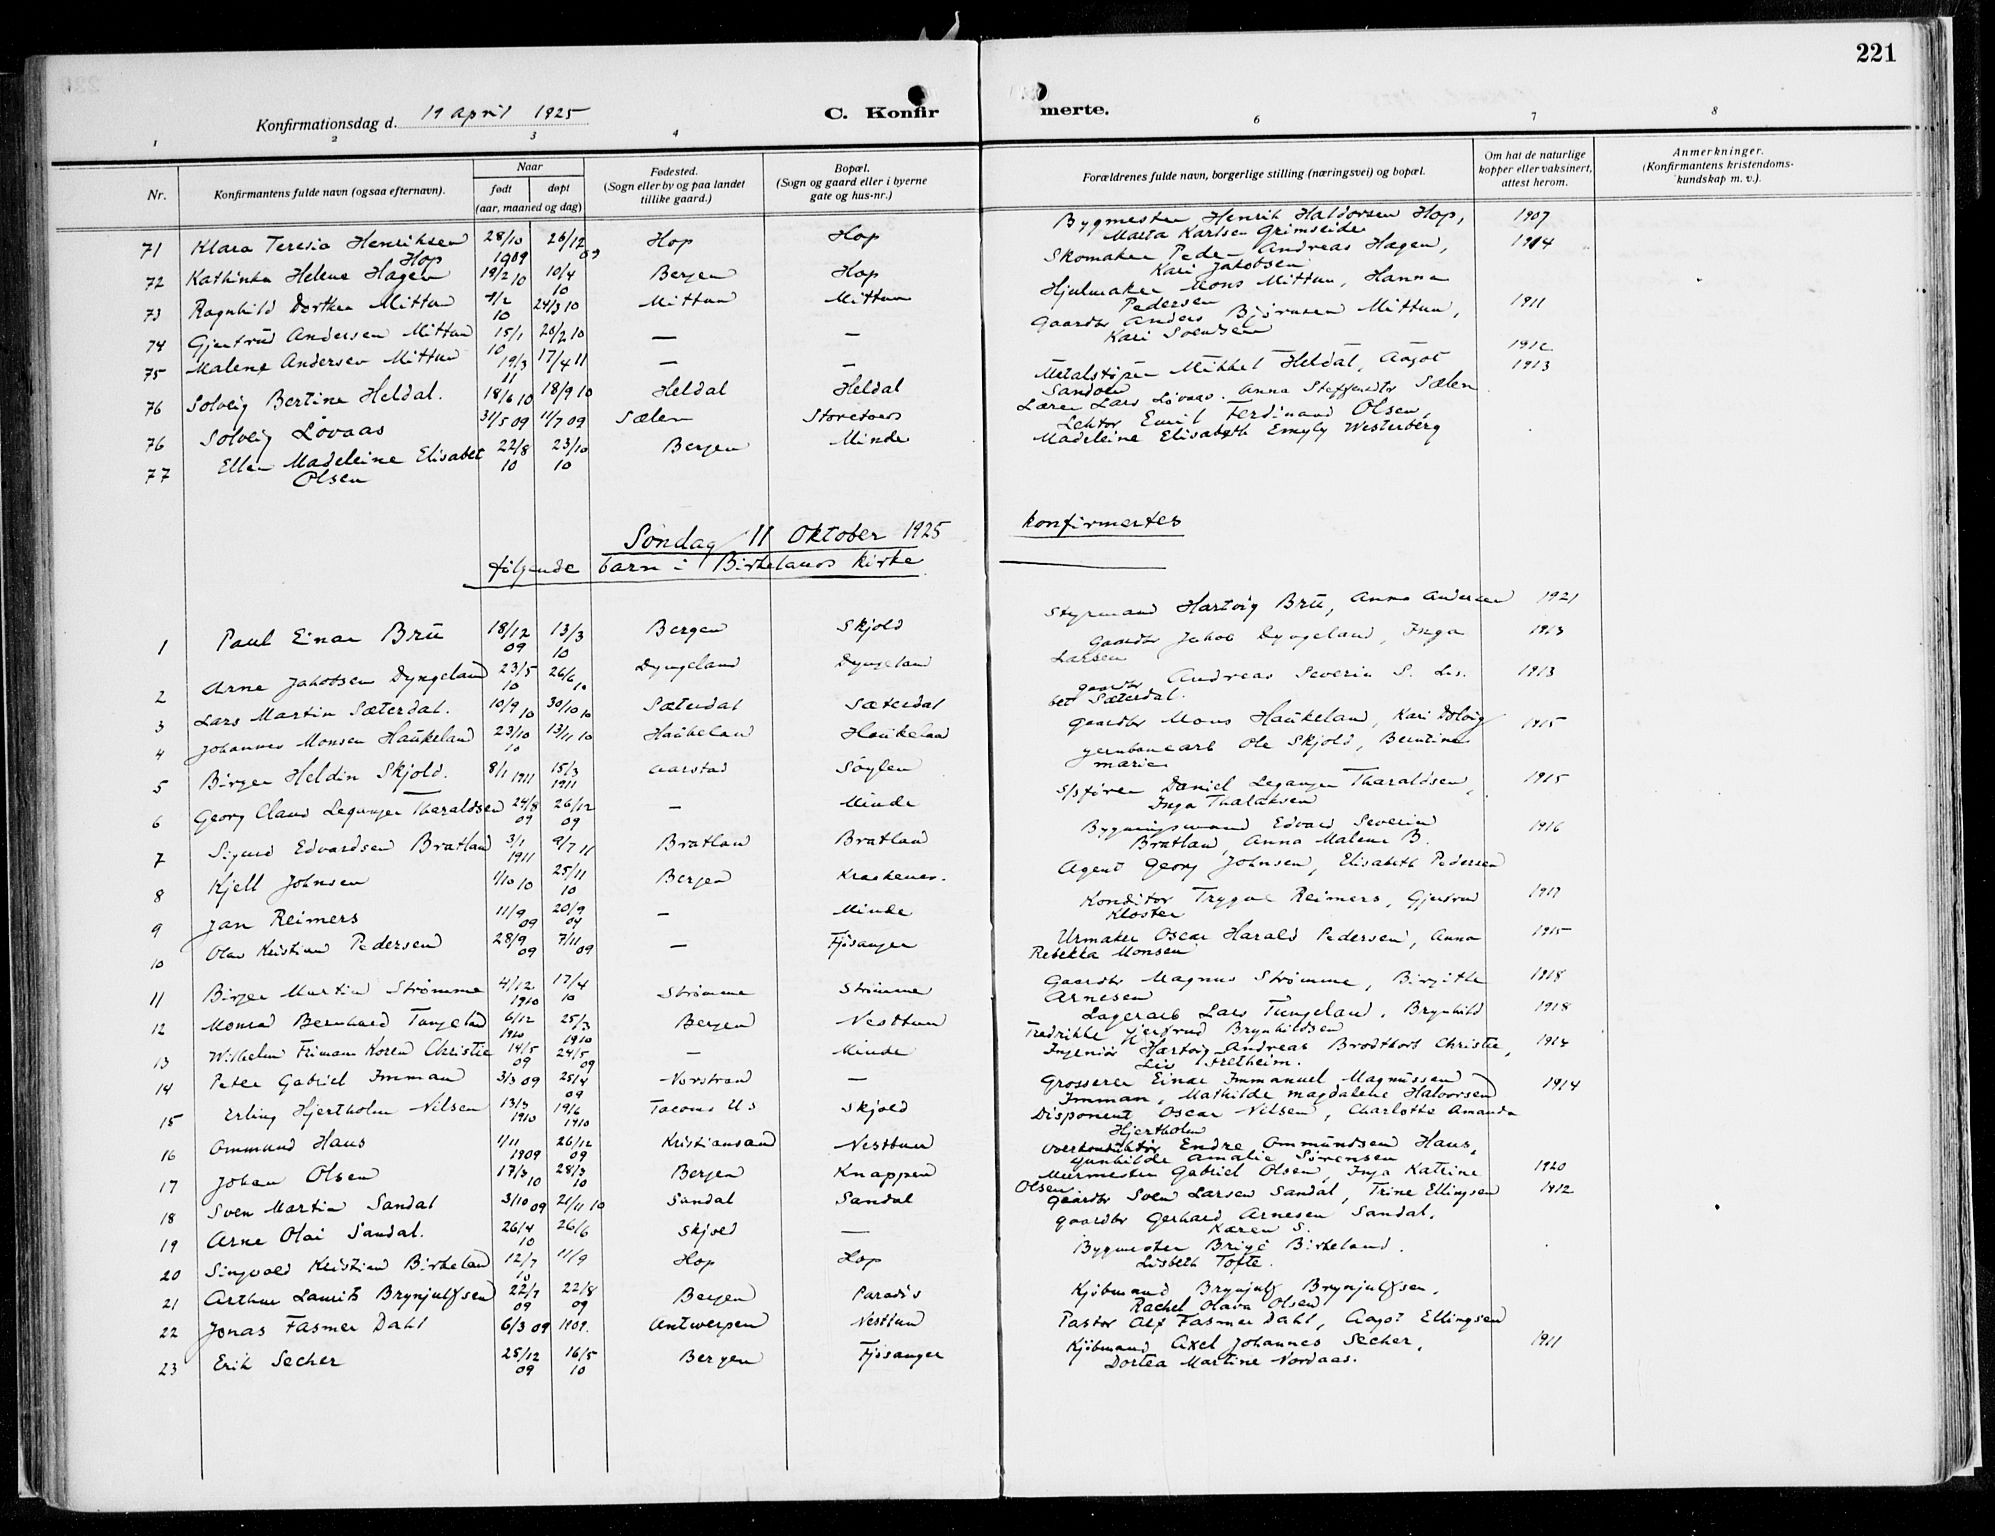 221
Konfirmationsdag d. 19 April 1925
C. Konfirmerte.
1 2 3 4 6 7 8
Nr.
Konfirmantens fulde navn (ogsaa efternavn).
Naar
født
døpt
(aar, maaned og dag)
Fødested.
(Sogn eller by og paa landet
tillike gaard.)
Bopæl.
(Sogn og gaard eller i byerne
gate og hus-nr.)
Forældrenes fulde navn, borgerlige stilling (næringsvei) og bopæl.
Om hat de naturlige
kopper eller vaksinert,
attest herom.
Anmerkninger.
(Konfirmantens kristendoms-
kundskap m. v.).
71 Klara Teresia Henriksen Hop 28/10 1909 26/12 09 Hop Hop Bygmester Henrik Haldorsen Hop, 1907
Marta Karlsen Grimseide
72 Kathinka Helene Hagen 19/2 10 10/4 10 Bergen Hop Skomaker Peder Andreas Hagen, 1914
Kari Jakobsen
73 Ragnhild Dorthea Mittun 4/2 10 24/3 10 Mittun Mittun Hjulmaker Mons Mittun, Hanna
Pedersen
74 Gjertrud Andersen Mittun 15/1 10 20/2 10 — — Gaardbr Anders Bjørnsen Mittun, 1911
Kari Svendsen
75 Malene Andersen Mittun 19/3 11 17/4 11 — — 1912
76 Solveig Bertine Heldal. 18/6 10 18/9 10 Heldal Heldal Metalstøper Mikkel Heldal, Aagot 1913
Sandven
76 Solveig Lövaas 31/5 09 11/7 09 Sælen Storetveit Lærer Lars Lövaas. Anna Steffensdtr Sælen
77 Ellen Madeleine Elisabet Olsen 22/8 10 23/10 10 Bergen Minde Lektor Emil Ferdinand Olsen,
Madeleine Elisabeth Emyly Westerberg
Søndag 11 Oktober 1925 konfirmertes
følgende barn i Birkelands kirke
1 Paul Einar Bru 18/12 09 13/3 10 Bergen Skjold Styrmand Hartvig Bru, Anna Andersen 1921
2 Arne Jakobsen Dyngeland 23/5 10 26/6 10 Dyngeland Dyngeland Gaardbr Jakob Dyngeland, Inga 1913
Larsen
3 Lars Martin Sæterdal. 10/9 10 30/10 10 Sæterdal Sæterdal gaardbr Andreas Severin S. Lis. 1913
bet Sæterdal.
4 Johannes Monsen Haukeland 23/10 10 13/11 10 Haukeland Haukeland gaardbr Mons Haukeland, Kari Dolvig 1915
5 Birger Heldin Skjold. 8/1 1911 15/3 1911 Aarstad Søylen jernbanearb Ole Skjold, Berntine
Marie
6 Georg Claus Leganger Tharaldsen 24/8 09 26/12 09 — Minde s/sfører Daniel Leganger Tharaldsen, 1915
Inga Tharaldsen
7 Sigurd Edvardsen Bratland 3/1 1911 9/7 11 Bratland Bratland Bygningsmand Edvard Severin 1916
Bratland, Anna Malene B.
8 Kjell Johnsen 1/10 10 25/11 10 Bergen Kraakenes. Agent Georg Johnsen, Elisabeth Pedersen
9 Jan Reimers 11/9 09 20/9 04 — Minde Konditor Trygve Reimers, Gjertrud 1917
Kloster
10 Olav Kristian Pedersen 28/9 09 7/11 09 — Fjøsanger Urmaker Oscar Harald Pedersen, Anna 1915
Rebekka Monsen
11 Birger Martin Strömme 4/12 1910 17/4 10 Strömme Strömme Gaardbr Magnus Strömme, Birgithe 1918
Arnesen
12 Monrad Bernhard Tungeland 6/12 1910 25/3 1910 Bergen Nesttun Lagerarb Lars Tungeland, Brynhild 1918
Fredrikke Hjertrud Brynhildsen
13 Wilhelm Friman Koren Christie 14/5 09 24/5 09 — Minde Ingeniör Hartvig Andreas Brodtkorb Christie, 1914
Liv Fretheim.
14 Peter Gabriel Imman 3/3 09 25/4 09 Norstrand — Grosserer Einar Immanuel Magnussen 1914
Imman, Mathilde Magdalene Halvorsen
15 Erling Hjertholm Nilsen 13/3 1910 19/6 1910 Tacoma U s Skjold Disponent Oscar Nilsen, Charlotte Amanda
Hjertholm
16 Ommund Haus 1/11 1909 26/12 09 Kristiansand Nesttun Overkonduktør Endre Ommundsen Haus,
Gunhilde Amalie Sørensen
17 Johan Olsen 17/3 10 28/3 10 Bergen Knappen Murmester Gabriel Olsen, Inga Katrine 1920
Olsen
18 Sven Martin Sandal 3/10 09 21/11 10 Sandal Sandal Gaardbr Sven Larsen Sandal, Trine Ellingsen 1912
19 Arne Olai Sandal. 26/4 10 26/6 Skjold — gaardbr Gerhard Arnesen Sandal,
Karen S.
20 Singvald Kristian Birkeland 12/7 10 11/9 Hop Hop Bygmester Brigt Birkeland.
Lisbeth Tofte.
21 Arthur Laurits Brynjulfsen 22/7 09 22/8 09 Bergen Paradis Kjøbmand Brynjulf Brynjulfsen,
Rachel Olava Olsen
22 Jonas Fasmer Dahl 6/3 09 1909. Antwerpen Nesttun Pastor Alf Fasmer Dahl, Aagot Ellingsen
23 Erik Secher 25/12 09 16/5 10 Bergen Fjøsanger Kjöbmand Axel Johannes Secher, 1911
Dortea Martine Nordaas.